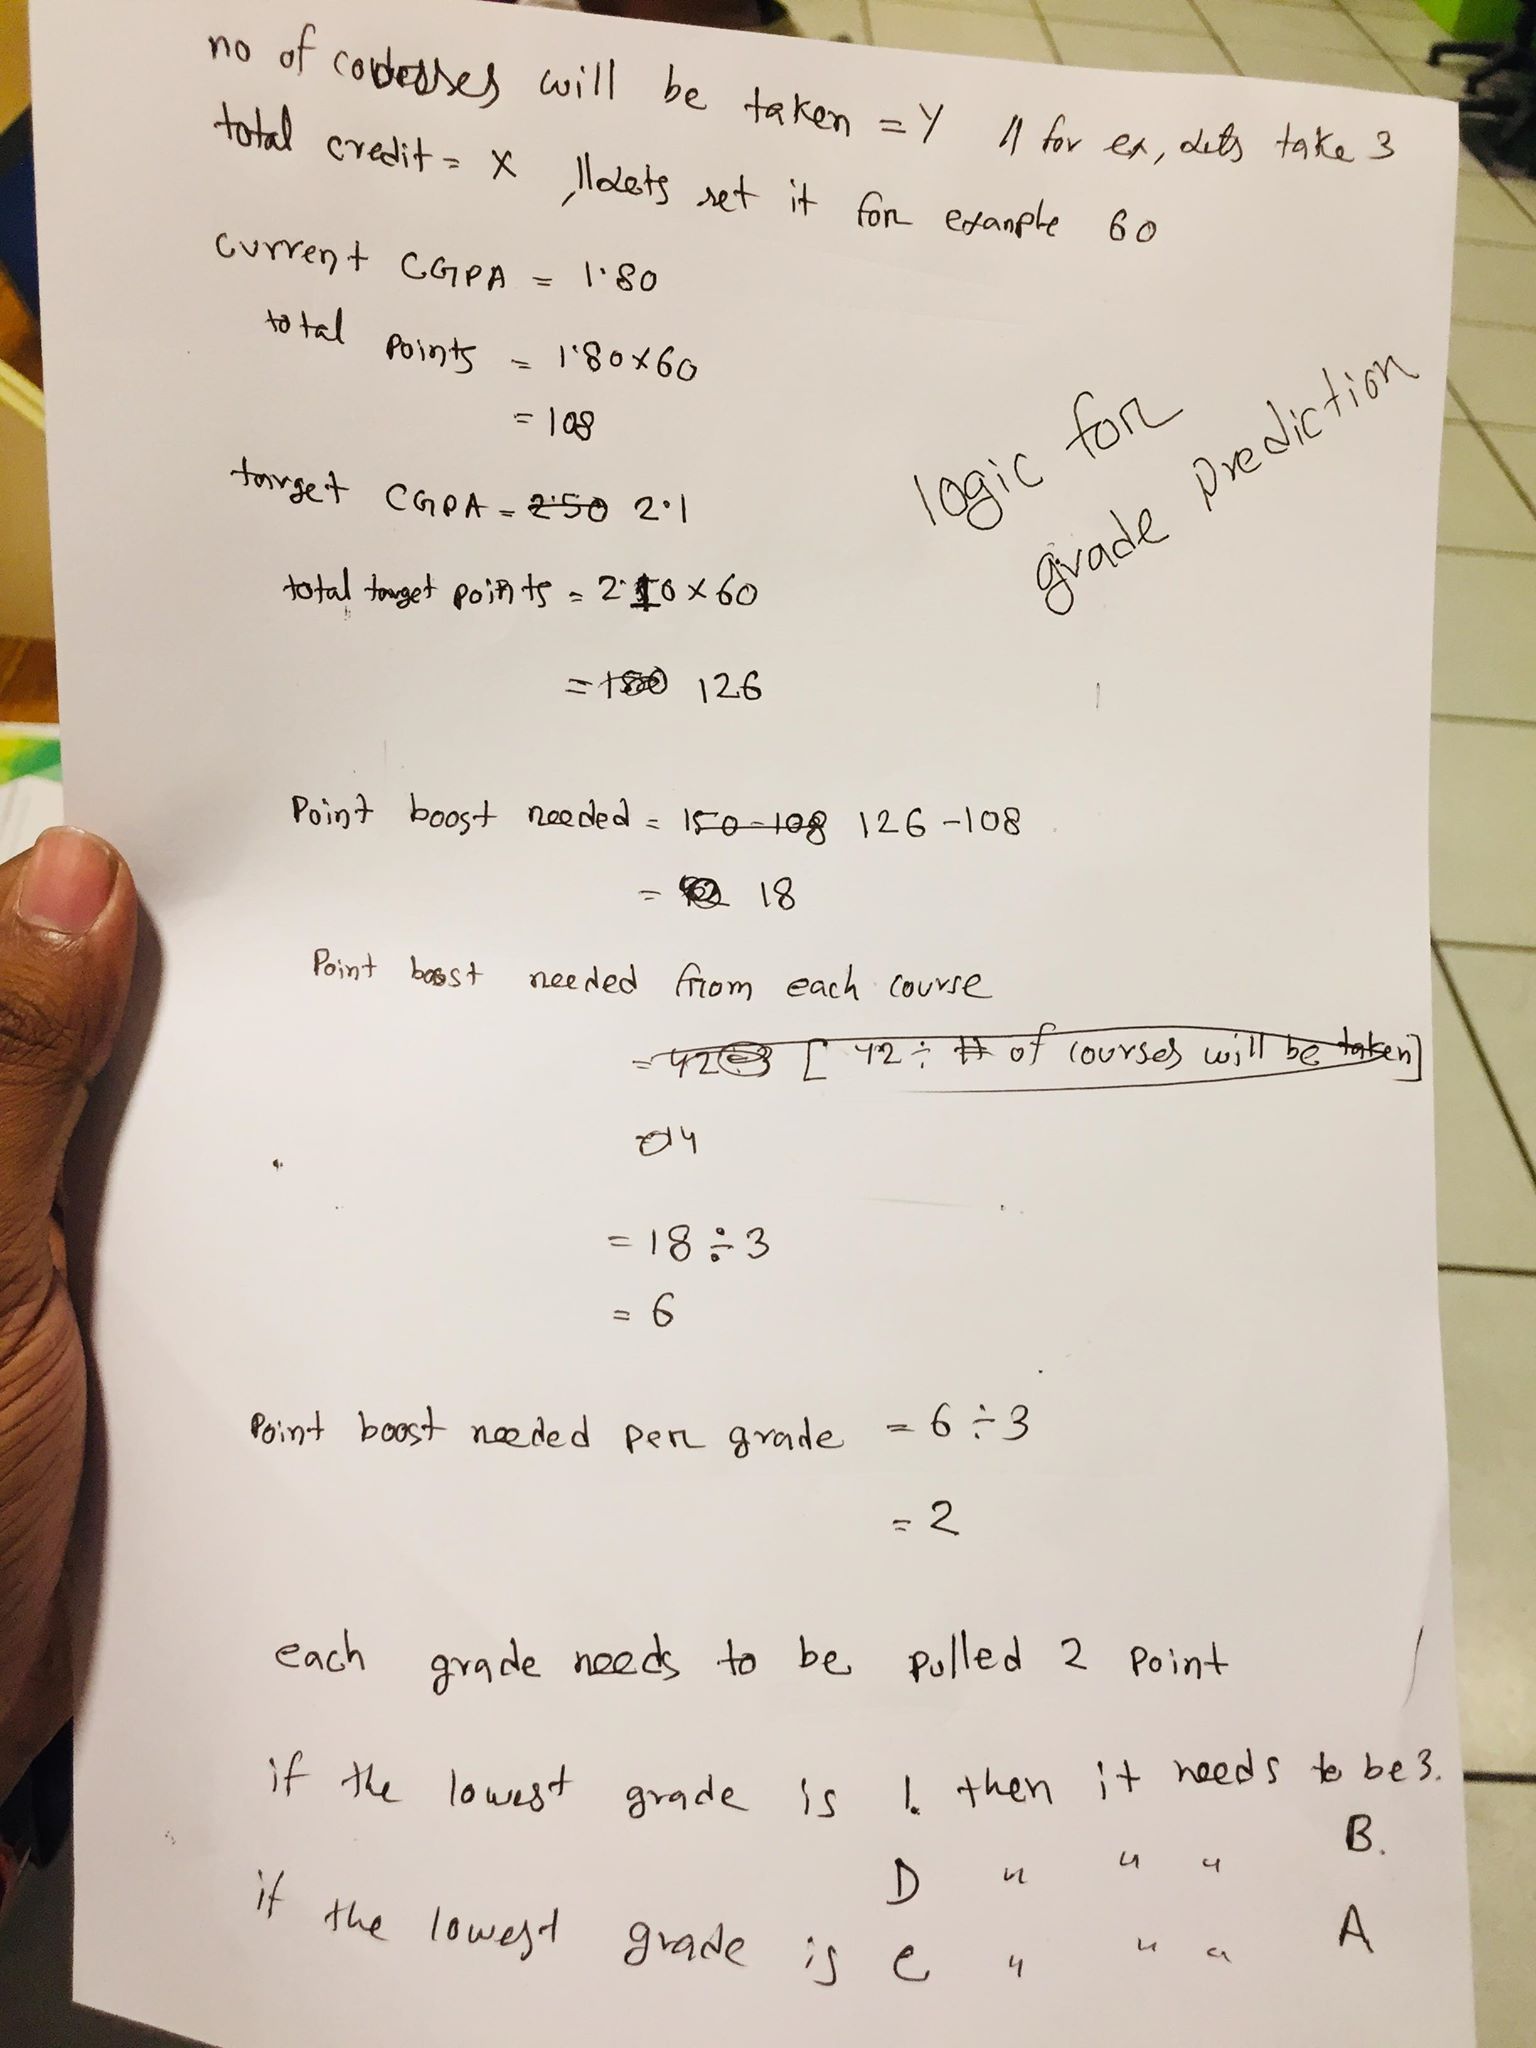 no of courses will be taken = Y // for ex, lets take 3
total credit = X , // lets set it for example 60
current CGPA = 1.80
total points = 1.80×60
= 108
logic for
grade prediction
target CGPA = 2.50 2.1
total target points = 2.10 × 60
= 150 126
Point boost needed = 150-108 126-108
= 42 18
Point boost needed from each course
= 42÷3 [ 42 ÷ # of courses will be taken]
14
= 18 ÷ 3
= 6
Point boost needed per grade = 6 ÷ 3
= 2
each grade needs to be pulled 2 point
if the lowest grade is 1. then it needs to be 3.
D " " " B.
if the lowest grade is C " " " A